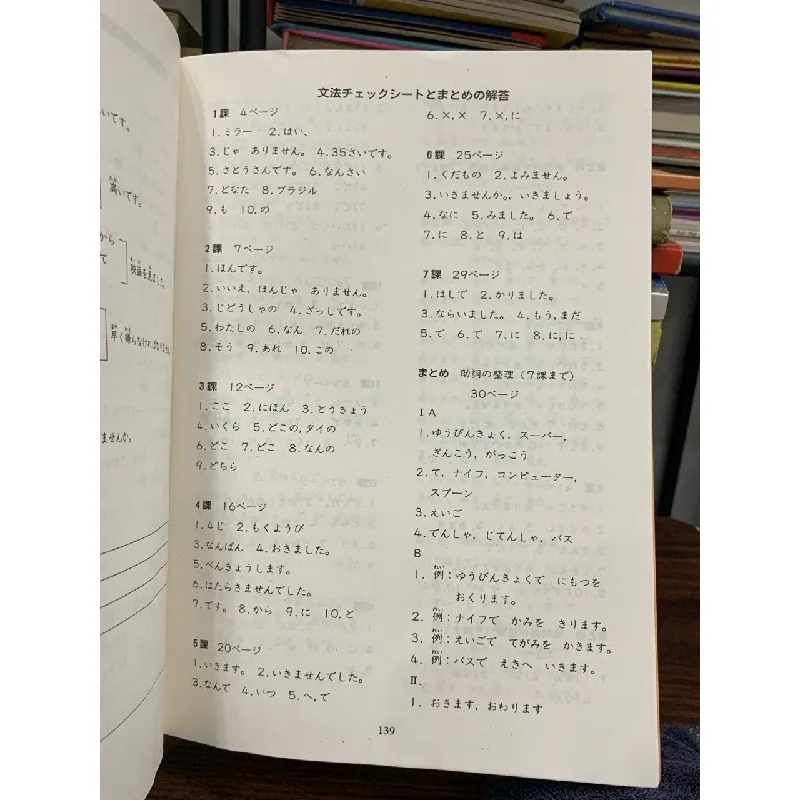 いです。
高いです。
から
て
映画を見ました
早く帰らなければなりません
ませんか。
文法チェックシートとまとめの解答
1課 4ページ
1.ミラー 2.はい、
3.じゃ ありません。 4.35さいです。
5.さとうさんです。 6.なんさい
7.どなた 8.ブラジル
9.も 10.の
2課 7ページ
1.ほんです。
2.いいえ、ほんじゃ ありません。
3.じどうしゃの 4.ざっしです。
5.わたしの 6.なん 7.だれの
8.そう 9.あれ 10.この
3課 12ページ
1.ここ 2.にほん 3.とうきょう
4.いくら 5.どこの,タイの
6.どこ 7.どこ 8.なんの
9.どちら
4課 16ページ
1.4じ 2.もくようび
3.なんぱん 4.おきました。
5.べんきょうします。
6.はたらきませんでした。
7.です。 8.から 9.に 10.と
5課 20ページ
1.いきます。 2.いきませんでした。
3.なんで 4.いつ 5.へ,で
6.×,× 7.×,に
6課 25ページ
1.くだもの 2.よみません。
3.いきませんか。,いきましょう。
4.なに 5.みました。 6.で
7.に 8.と 9.は
7課 29ページ
1.はして 2.かりました。
3.ならいました。 4.もう,まだ
5.で 6.で 7.に 8.に,に
まとめ 助詞の整理(7課まで)
30ページ
I A
1.ゆうびんきょく, スーパー,
ぎんこう, がっこう
2.て, ナイフ, コンピューター,
スプーン
3.えいご
4.でんしゃ, じてんしゃ, バス
B
1. 例:ゆうびんきょくで にもつを
おくります。
2. 例:ナイフで かみを きります。
3. 例:えいごで てがみを かきます。
4. 例:バスで えきへ いきます。
II.
1. おきます, おわります
139